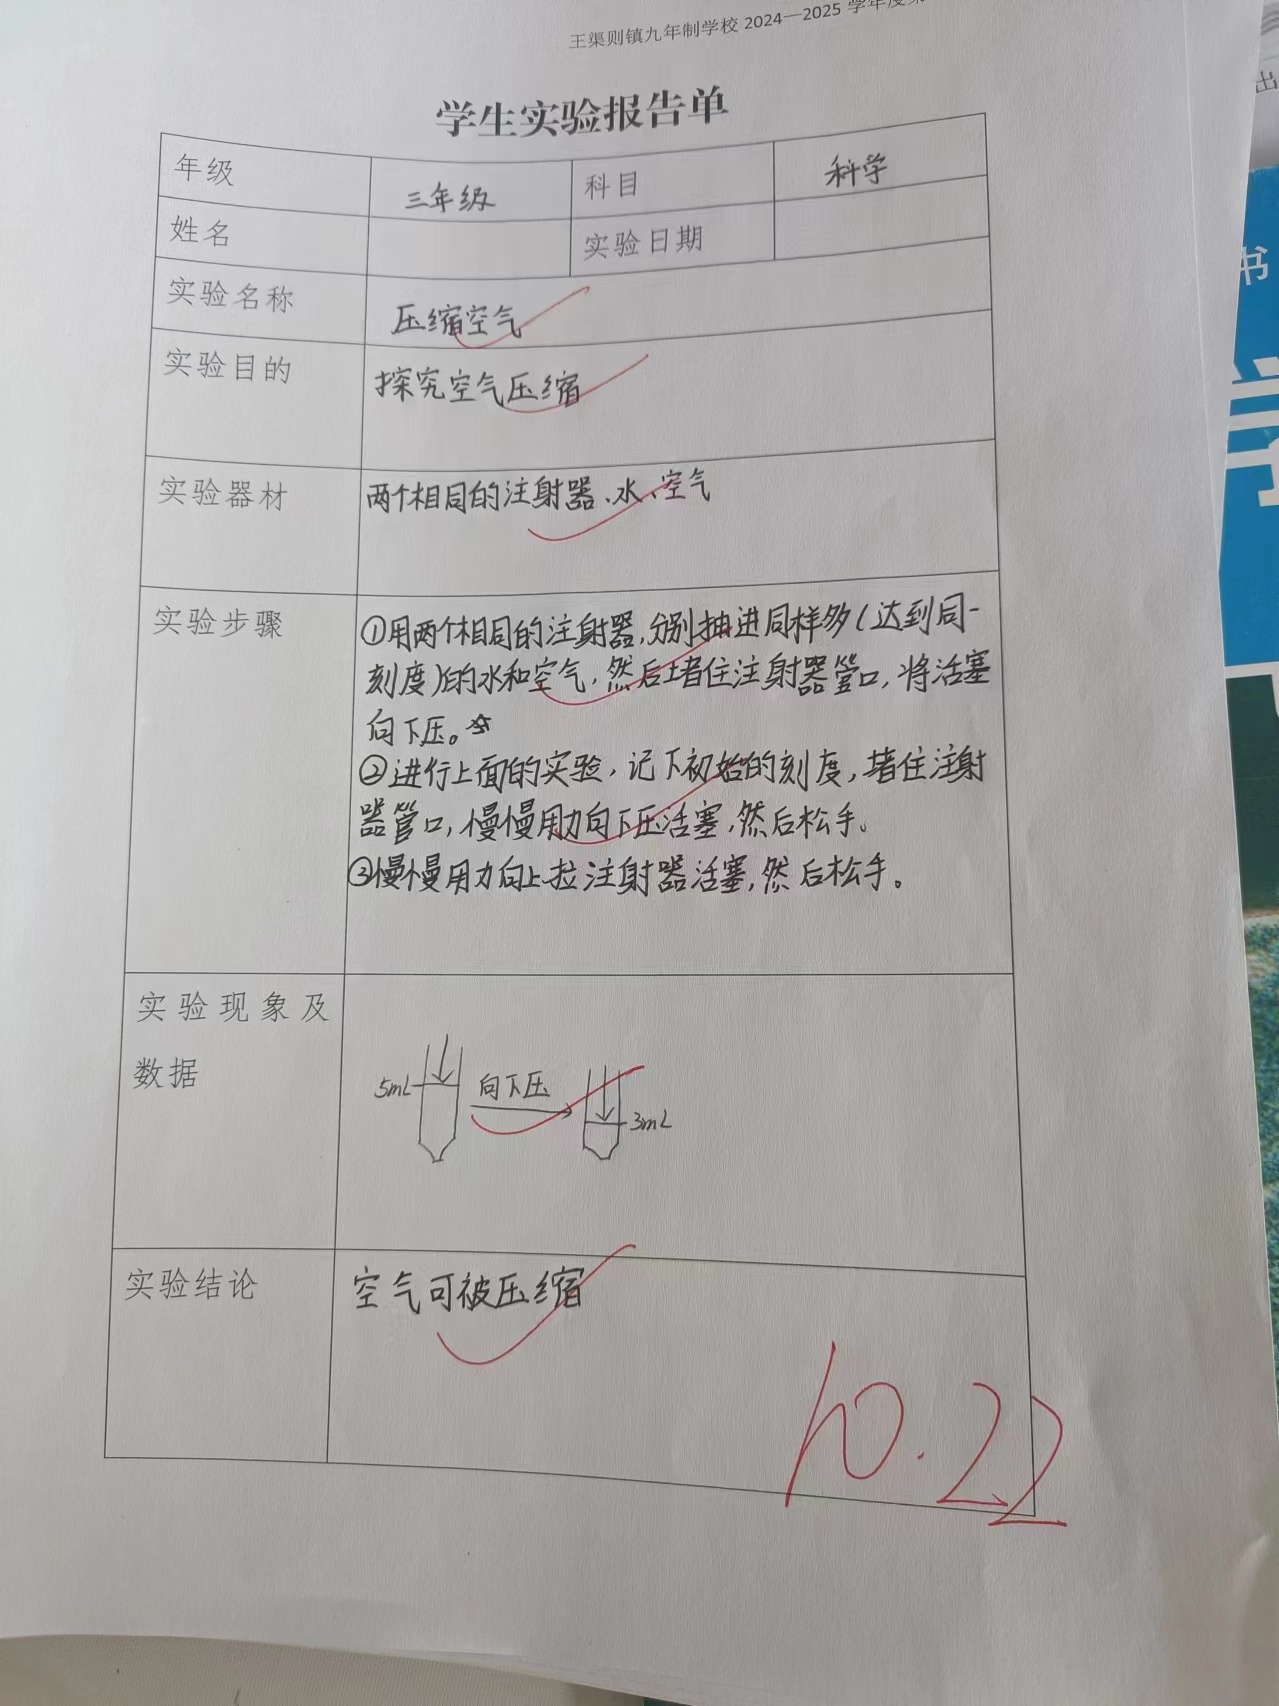 王渠则镇九年制学校 2024—2025 学年度第
学生实验报告单
年级 三年级 科目 科学
姓名 实验日期
实验名称 压缩空气
实验目的 探究空气压缩
实验器材 两个相同的注射器、水、空气
实验步骤 ①用两个相同的注射器,分别抽进同样多(达到同一
刻度)的水和空气,然后堵住注射器管口,将活塞
向下压。
②进行上面的实验,记下初始的刻度,堵住注射
器管口,慢慢用力向下压活塞,然后松手。
③慢慢用力向上拉注射器活塞,然后松手。
实验现象及
数据
5mL 向下压 3mL
实验结论 空气可被压缩
10.22
出
书
学